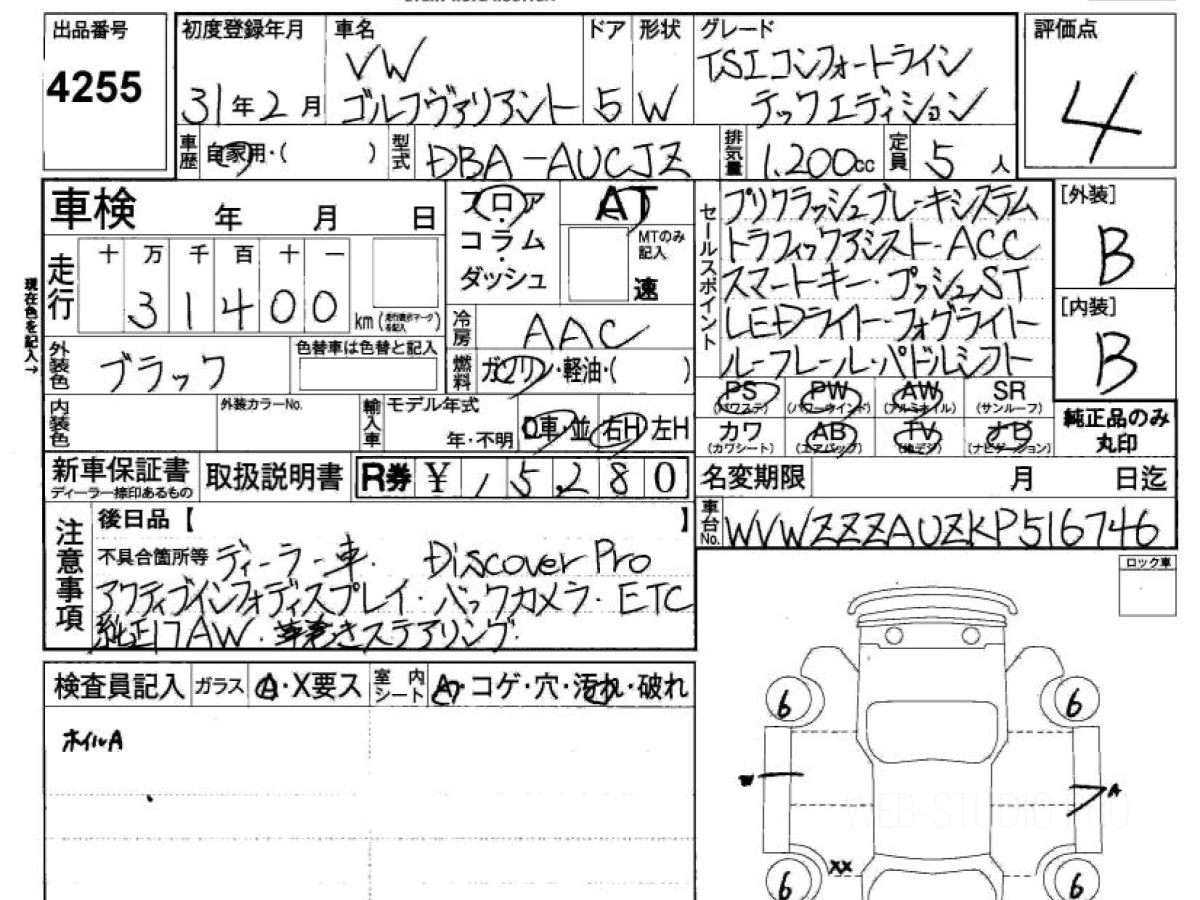 出品番号
4255
初度登録年月
31年2月
車名
VW
ゴルフヴァリアント
ドア
5
形状
W
グレード
TSIコンフォートライン
テックエディション
評価点
4
車歴
自家用・( )
型式
DBA-AUCJZ
排気量
1.200cc
定員
5人
車検 年 月 日
フロア
コラム
ダッシュ
AT
MTのみ
記入
速
セールスポイント
プリクラッシュブレーキシステム
トラフィックアシスト・ACC
スマートキー・プッシュST
LEDライト・フォグライト
ルーフレール・パドルシフト
[外装]
B
[内装]
B
現在色を記入→
走行
十 万 千 百 十 一
3 1 4 0 0
km
冷房
AAC
外装色
ブラック
色替車は色替と記入
燃料
ガソリン・軽油・( )
PS PW AW SR
(パワステ) (パワーウインド) (アルミホイル) (サンルーフ)
カワ AB TV ナビ
(カワシート) (エアバッグ) (地デジ) (ナビゲーション)
純正品のみ
丸印
内装色
外装カラーNo.
輸入車
モデル年式
年・不明
D車・並
右H・左H
新車保証書
ディーラー捺印あるもの
取扱説明書
R券 ¥ 15,280
名変期限 月 日迄
車台No.
WVWZZZAUZKP516746
注意事項
後日品【 】
不具合箇所等 ディーラー車. Discover Pro
アクティブインフォディスプレイ・バックカメラ・ETC
純正17AW・革巻きステアリング
ロック車
検査員記入
ガラス
A・X要ス
室内
シート
A・コゲ・穴・汚れ・破れ
ホイルA
6 6
W
A
XX
6 6
WEB-STUDIO.PRO